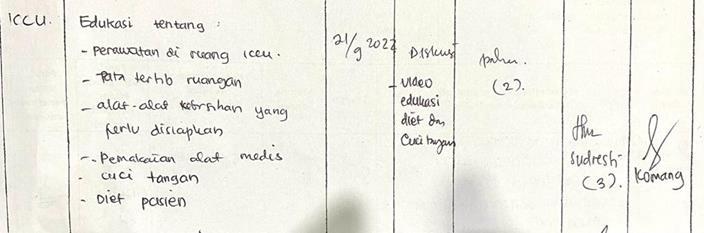 ICCU.
Edukasi tentang :
- Perawatan di ruang ICCU.
- Tata tertib ruangan
- alat-alat kebersihan yang
perlu disiapkan
- Pemakaian alat medis
- cuci tangan
- Diet pasien
21/9 2022
Diskusi
- video
edukasi
diet dan
Cuci tangan
paham.
(2).
Sudresti
(3).
Komang